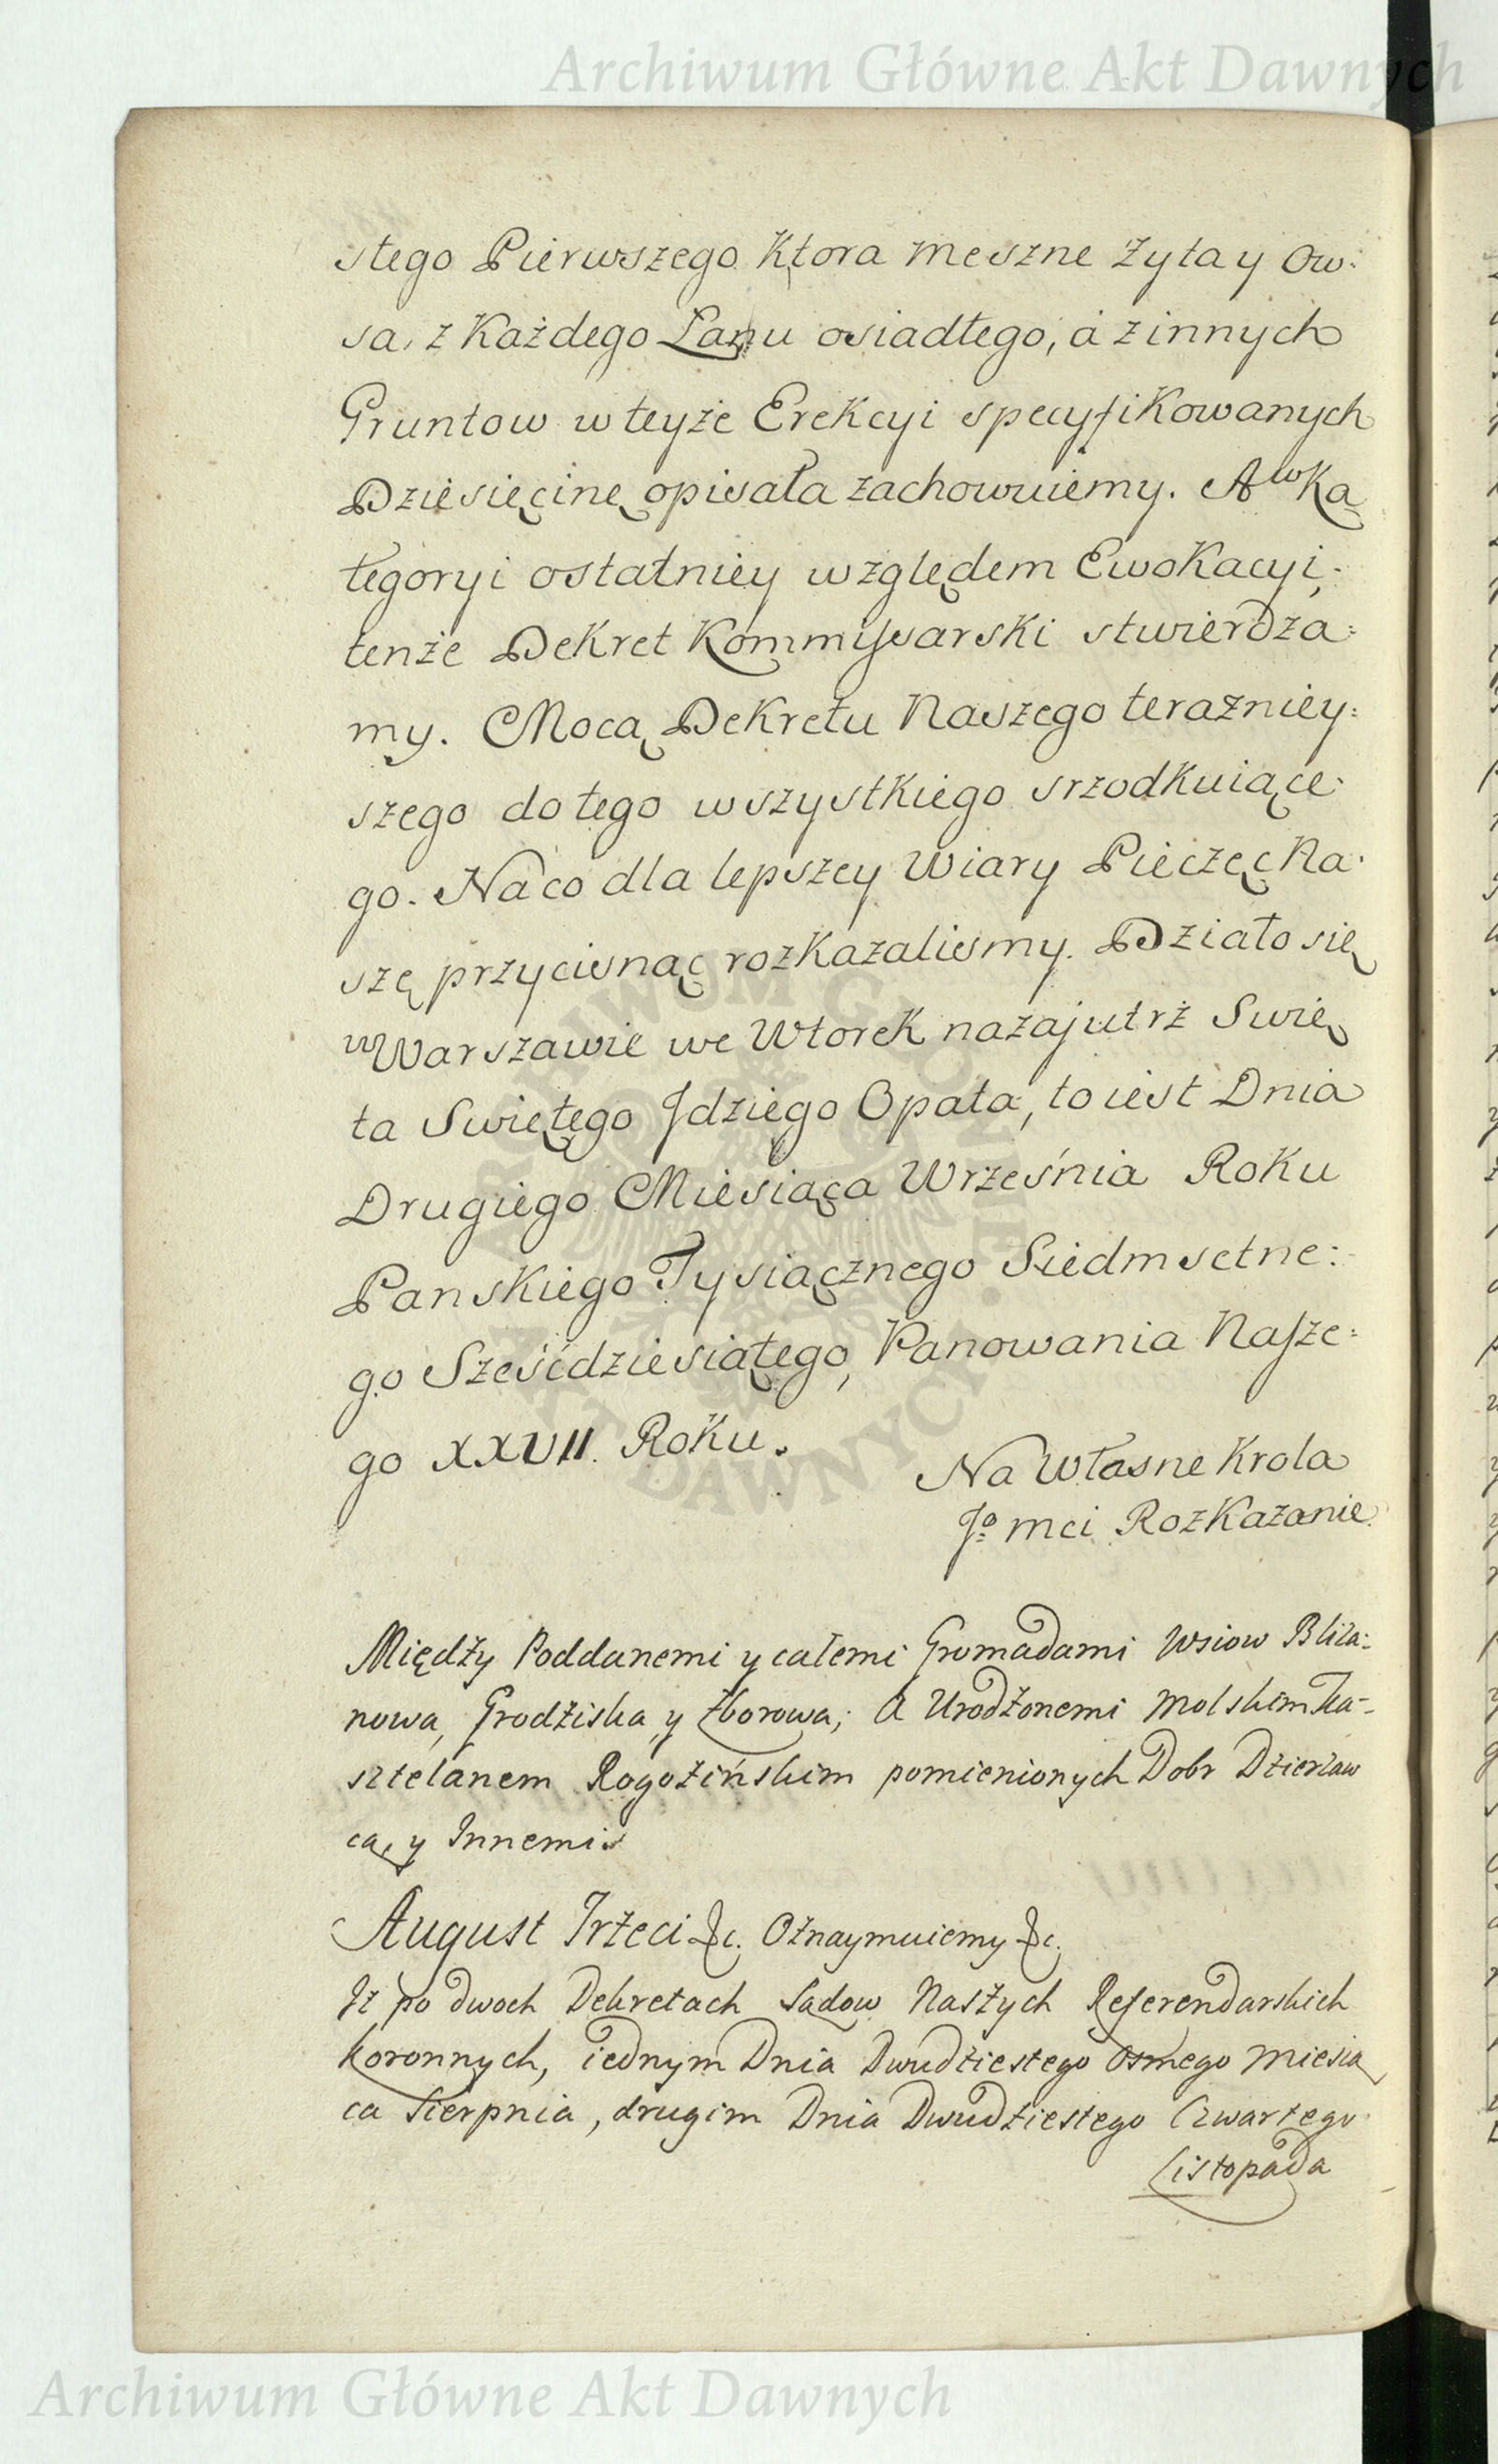 Archiwum Główne Akt Dawnych
stego Pierwszego Ktora meszne Zyta y Ow:
sa, z Każdego Łanu osiadłego, a z innych
Gruntow w teyże Erekcyi specyfikowanych
Dziesięcinę opisała zachowuiemy. A w Ka
tegoryi ostatniey względem Ewokacyi,
tenże Dekret Kommissarski stwierdza:
my. Mocą Dekretu Naszego teraźniey:
szego do tego wszystkiego srzodkuiące:
go. Na co dla lepszey Wiary Pieczęc Na:
szę przycisnąc rozkazalismy. Działo się
w Warszawie we Wtorek nazajutrż Swię
ta Swiętego Jdziego Opata, to iest Dnia
Drugiego Miesiąca Września Roku
Panskiego Tysiącznego Siedmsetne:
go Sześćdziesiątego, Panowania Nasze:
go XXVII. Roku.
Na Własne Krola
Jº mci Rozkazanie
Między Poddanemi y całemi Gromadami Wsiow Bliza:
nowa, Grodziska, y Zborowa; A Urodzonemi Molskim Ka-
sztelanem Rogozińskim pomienionych Dobr Dzierzaw
cą, y Innemi
August Trzeci &c. Oznaymuiemy &c.
Iż po dwoch Dekretach Sądow Naszych Referendarskich
Koronnych, iednym Dnia Dwudziestego Osmego Miesią
ca Sierpnia, drugim Dnia Dwudziestego Czwartego
Listopada
ARCHIWUM GŁÓWNE AKT DAWNYCH
Archiwum Główne Akt Dawnych